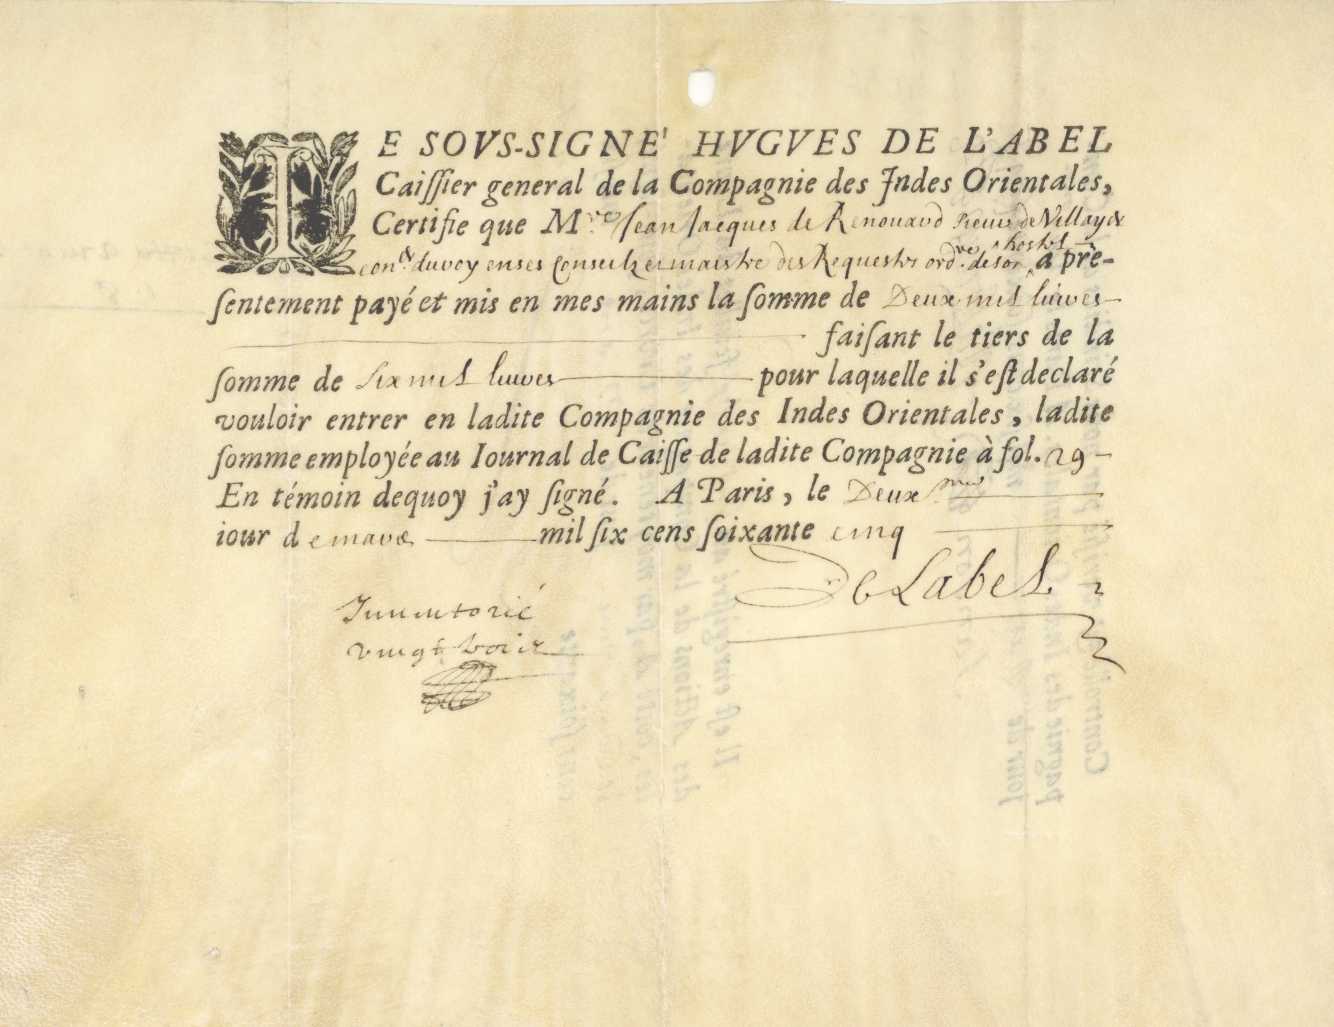 IE SOVS-SIGNE' HVGVES DE L'ABEL
Caissier general de la Compagnie des Indes Orientales,
Certifie que Mre Jean Jacques de Renouard sieur de Villayer
con.er du roy en ses Conseilz et maistre des Requestes ord.re de son hostel a pre-
sentement payé et mis en mes mains la somme de Deux mil livres
faisant le tiers de la
somme de Six mil livres pour laquelle il s'est declaré
vouloir entrer en ladite Compagnie des Indes Orientales, ladite
somme employée au Iournal de Caisse de ladite Compagnie à fol. 29
En témoin dequoy j'ay signé. A Paris, le Deux
iour de mars mil six cens soixante cinq
De Label
Inventorié
vingt trois